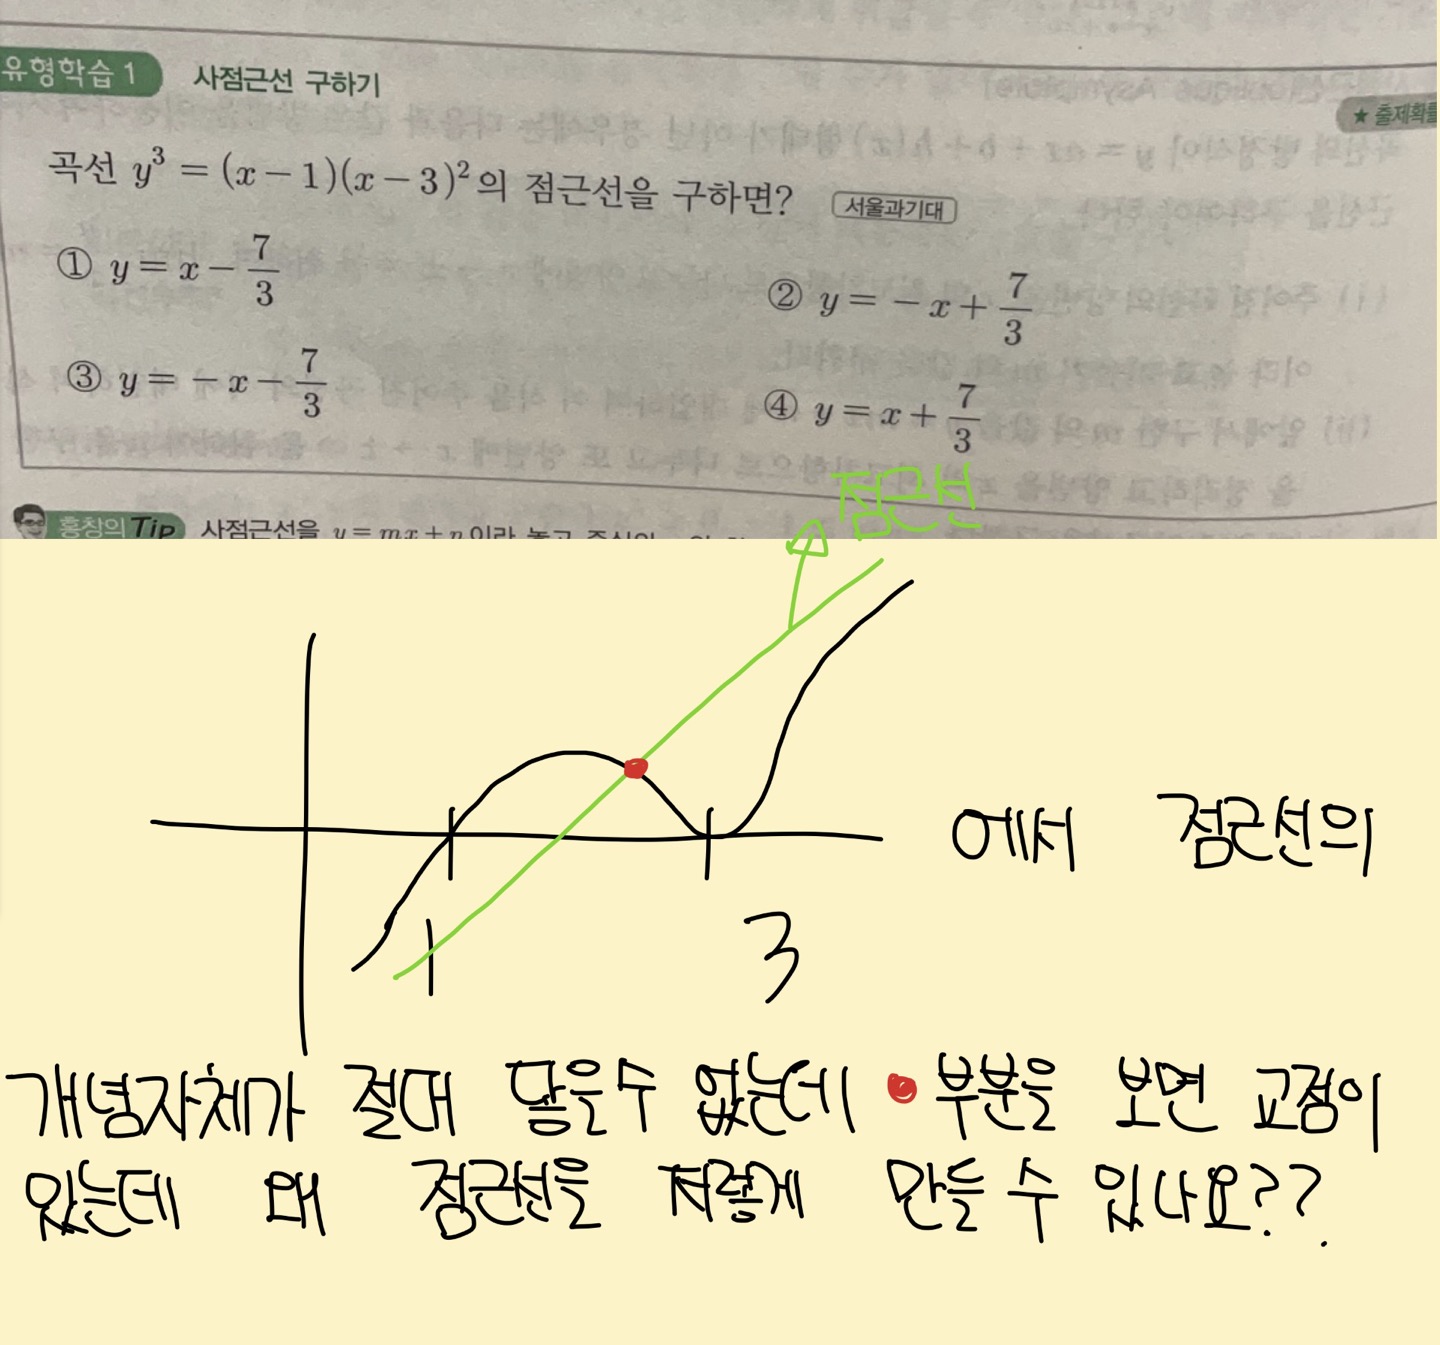 유형학습 1 사점근선 구하기
★ 출제확률
곡선 y³ = (x − 1)(x − 3)²의 점근선을 구하면? 서울과기대
① y = x − 7/3
② y = − x + 7/3
③ y = − x − 7/3
④ y = x + 7/3
홍창의 Tip 사점근선을 y = mx + n이라 놓고
점근선
에서 점근선의
1 3
개념자체가 절대 닿을수 없는데 부분을 보면 교점이
있는데 왜 점근선을 저렇게 만들 수 있나요??.